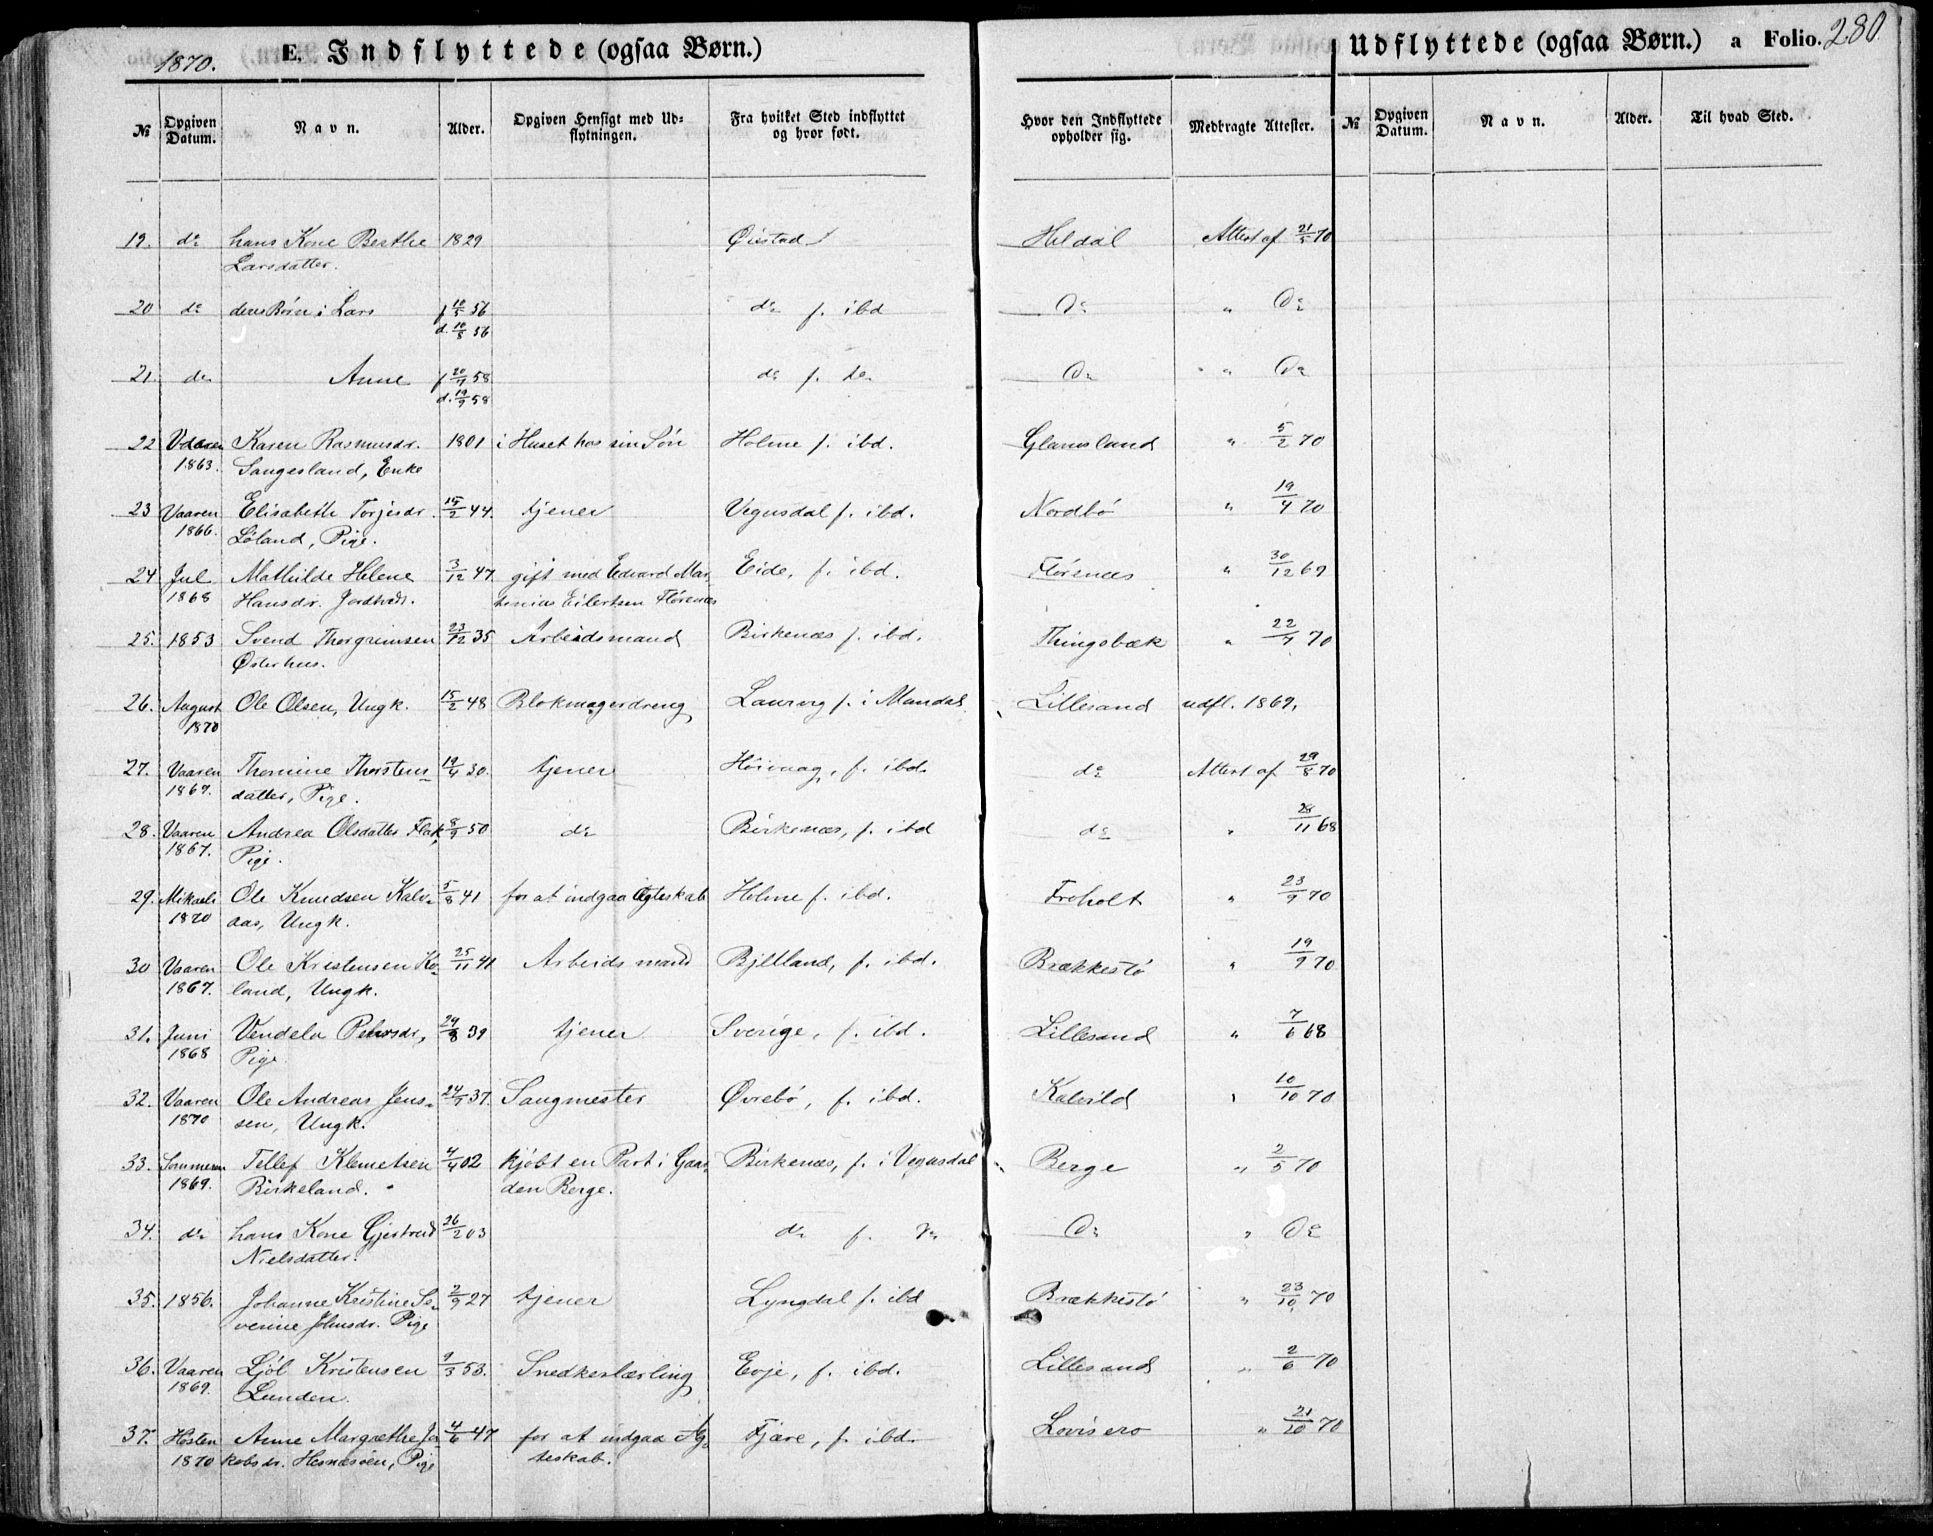 1870. E. Indflyttede (ogsaa Børn.) Udflyttede (ogsaa Børn.) a Folio. 280
№ Opgiven Datum. Navn. Alder. Opgiven Hensigt med Udflytningen. Fra hvilket Sted indflyttet og hvor født. Hvor den Indflyttede opholder sig. Medbragte Attester. № Opgiven Datum. Navn. Alder. Til hvad Sted.
19. do hans Kone Berthe 1829 Øiestad Heldal Attest af 21/5 70
Larsdatter.
20 do deres Børn: Lars f 10/5 56 do f. ibd Do " Do
d. 10/8 56
21. do Anne f 20/7 58 do f. do Do " Do
d. 19/9 58
22 Vaaren Karen Rasmusdr. 1801 i Huset hos sin Søn Holme f. ibd. Glamsland " 5/2 70
1863. Sangesland, Enke
23 Vaaren Elisabeth Torjesdr. 15/2 44. tjener Vegusdal f. ibd. Nordbø " 19/4 70
1866. Løland, Pige.
24 Jul Mathilde Helene 3/12 47. gift med Edvard Mar- Eide, f. ibd. Flørenæs " 30/12 69
1868 Hansdr. tinius Eilertsen Flørenæs
25. 1853 Svend Thorgrimsen 23/12 35 Arbeidsmand Birkenæs f. ibd. Thingsbæk " 22/7 70
Østerhus.
26. August Ole Olsen, Ungk. 15/2 48 Blokmagerdreng Laurvig f. i Mandal Lillesand udfl. 1869.
1870
27. Vaaren Thomine Thorstens- 19/4 30. tjener Høivaag, f. ibd. do Attest af 29/8 70
1867. datter, Pige.
28. Vaaren Andrea Olsdatter Flak, 8/9 50 do Birkenæs, f. ibd do " 28/11 68
1867. Pige.
29. Mikaeli Ole Knudsen Kalv- 5/8 41 for at indgaa Ægteskab Holme f. ibd. Froholt " 23/9 70
1870 aas, Ungk.
30 Vaaren Ole Kristensen Ho- 25/11 41 Arbeidsmand Bjelland, f. ibd. Brækkestø " 19/9 70
1867. land, Ungk.
31. Juni Vendela Petersdr, 29/8 39 tjener Sverige, f. ibd. Lillesand " 7/6 68
1868 Pige.
32. Vaaren Ole Andreas Jens- 24/7 37. Saugmester Øvrebø, f. ibd. Kalvild " 10/10 70
1870 sen, Ungk.
33. Sommeren Tellef Klemetsen 4/4 02 kjøbt en Part i Gaar- Birkenæs, f. i Vegusdal Berge " 2/5 70
1869. Birkeland. den Berge.
34. do hans Kone Gjertrud 26/2 03 do f. do Do " Do
Nielsdatter.
35. 1856. Johanne Kristine Se- 2/9 27 tjener Lyngdal f. ibd Brækkestø " 23/10 70
verine Johnsdr. Pige
36. Vaaren Ljøl Kristensen 9/3 53. Snedkerlærling Evje, f. ibd. Lillesand " 2/6 70
1869. Lunden.
37. Høsten Anne Margrethe Ja- 4/6 47 for at indgaa Æg- Fjære, f. ibd. Lovisero " 21/10 70
1870 kobsdr. Hesnæsøen, Pige teskab.